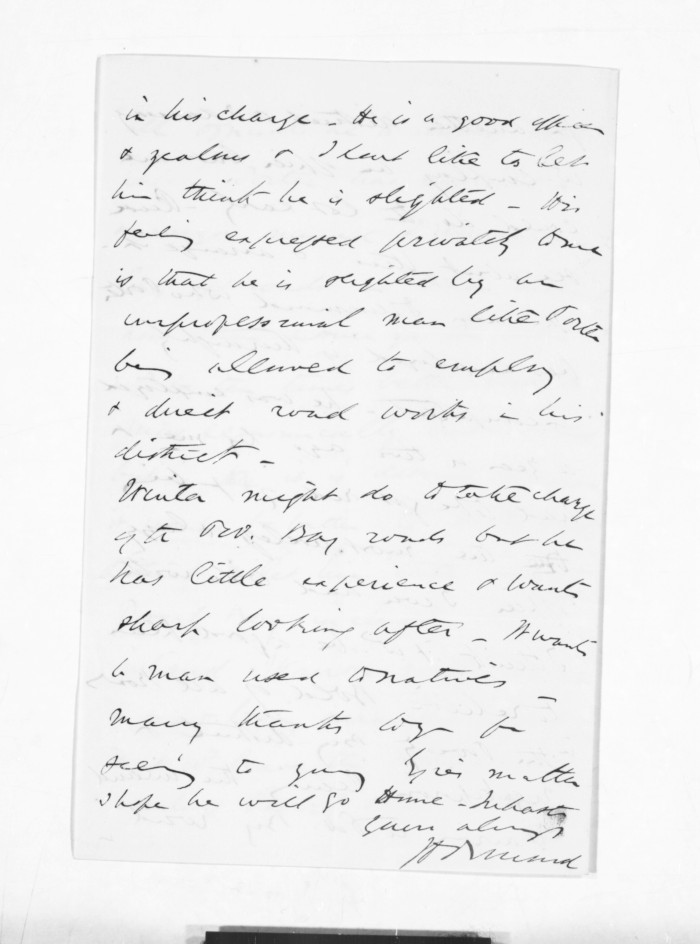 in his charge - He is a good officer
& zealous & I don't like to let
him think he is slighted - His
feeling expressed privately to me
is that he is slighted by an
unprofessional man like Porter
being allowed to employ
& direct road works in his
district -
Winter might do to take charge
of the Pov. Bay roads but he
has little experience & wants
sharp looking after - It wants
a man used to natives -
many thanks to you for
seeing to young matter
I hope he will go Home - In haste
yours always
JD Ormond